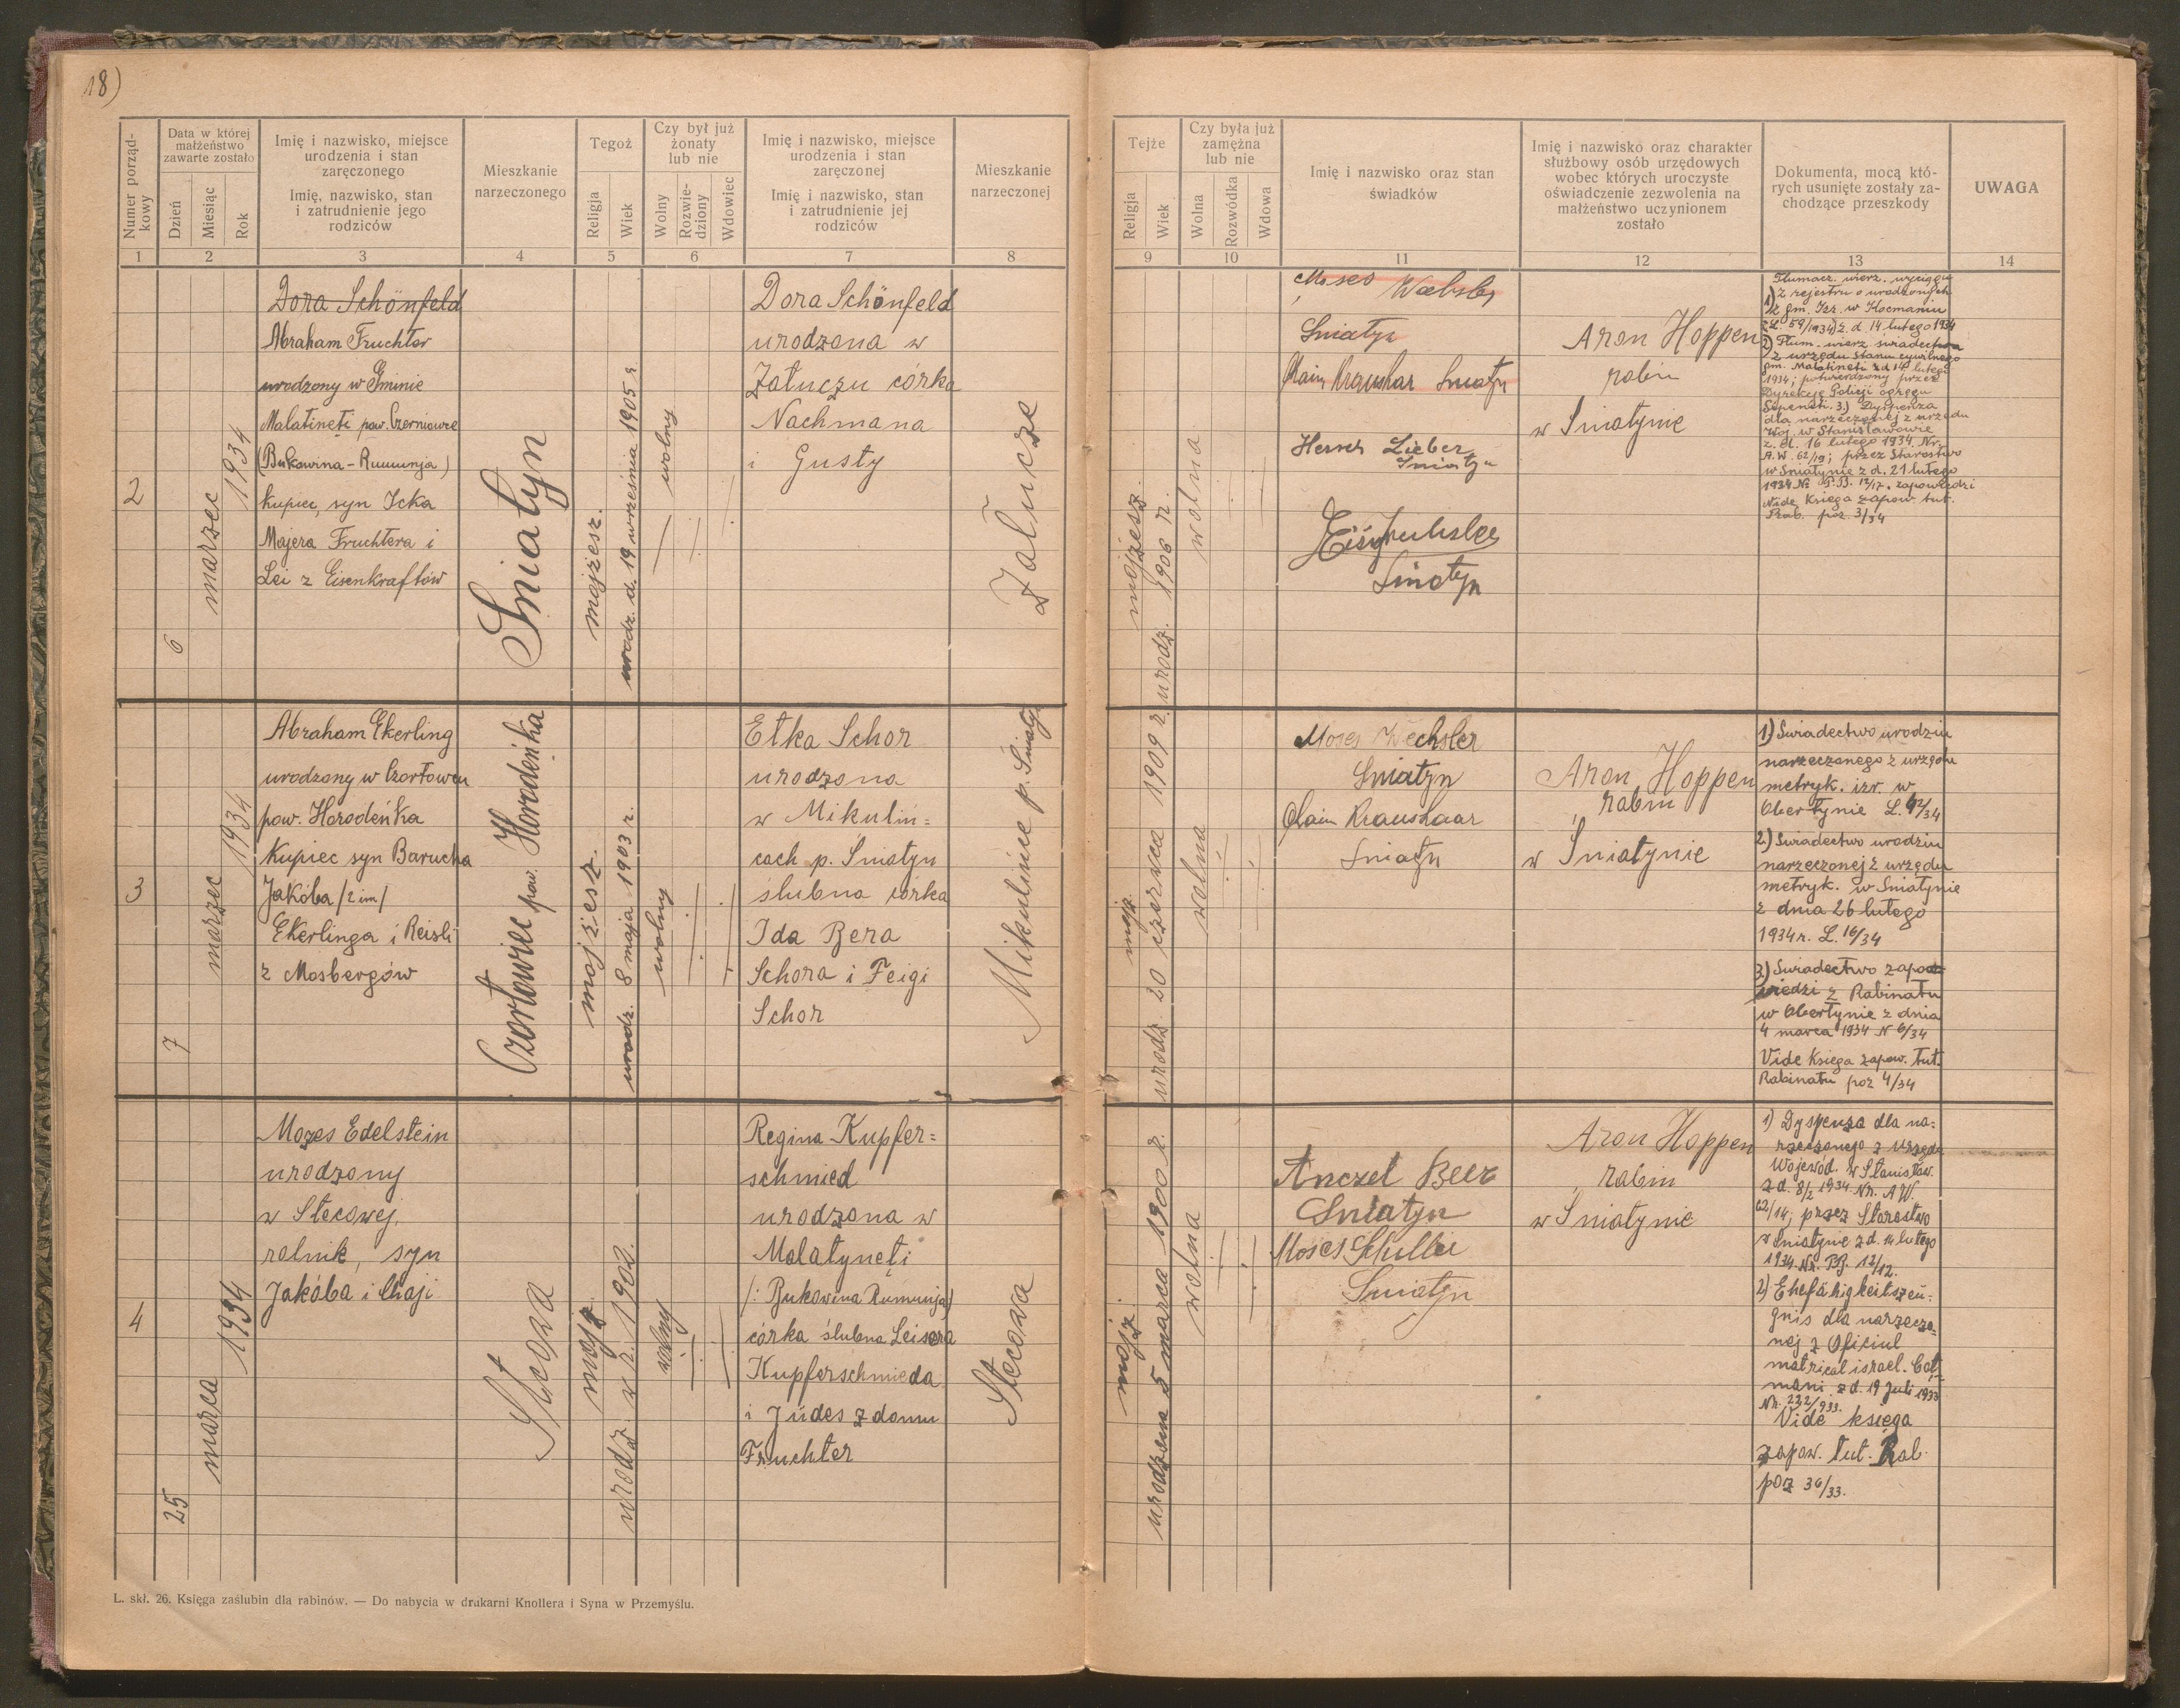 18)
Numer porząd-
kowy
Data w której
małżeństwo
zawarte zostało
Dzień
Miesiąc
Rok
Imię i nazwisko, miejsce
urodzenia i stan
zaręczonego
Imię, nazwisko, stan
i zatrudnienie jego
rodziców
Mieszkanie
narzeczonego
Tegoż
Religja
Wiek
Czy był już
żonaty
lub nie
Wolny
Rozwie-
dziony
Wdowiec
Imię i nazwisko, miejsce
urodzenia i stan
zaręczonej
Imię i nazwisko, stan
i zatrudnienie jej
rodziców
Mieszkanie
narzeczonej
1 2 3 4 5 6 7 8
Tejże
Religja
Wiek
Czy była już
zamężna
lub nie
Wolna
Rozwódka
Wdowa
Imię i nazwisko oraz stan
świadków
Imię i nazwisko oraz charakter
służbowy osób urzędowych
wobec których uroczyste
oświadczenie zezwolenia na
małżeństwo uczynionem
zostało
Dokumenta, mocą któ-
rych usunięte zostały za-
chodzące przeszkody
UWAGA
9 10 11 12 13 14
2
6
marzec
1934
Dora Schönfeld
Abraham Fruchter
urodzony w Gminie
Malatineţi pow. Czerniowce
(Bukowina - Rumunja)
kupiec, syn Icka
Majera Fruchtera i
Lei z Eisenkraftów
Śniatyn
mojżesz.
urodz. d. 19 września 1905 r
wolny
Dora Schönfeld
urodzona w
Załuczu córka
Nachmana
i Gusty
Załucze
mojżesz.
urodz. 1906 r.
wolna
Moses
Śniatyn
Chaim Kraushar Sniatyn
Herrsch Lieber
Sniatyn
Sniatyn
Aron Hoppen
rabin
w Śniatynie
Tłumacz. wierz. wyciągu
1) z rejestru o urodzonych
z gm. Izr. w Kocmaniu
z L. 59/1934 z d. 14 lutego 1934
2) Tłum. wierz świadectwa
z urzędu stanu cywilnego
gm. Malatineti z d 14 lutego
1934; potwierdzony przez
Dyrekcję Policji okręgu
3.) Dyspenza
dla narzeczonej z urzędu
Woj. w Stanisławowie
z. d. 16 lutego 1934. Nr.
A.W. 62/19; przez Starostwo
w Sniatynie z d. 21 lutego
1934 Nr P.B. 12/17. zapowiedzi
Vide Księga zapow. tut.
Rab. poz. 3/34
3
7
marzec
1934
Abraham Ekerling
urodzony w Czortowcu
pow. Horodeńka
Kupiec syn Barucha
Jakóba /2 im/
Ekerlinga i Reisli
z Mosbergów
Czortowiec pow. Horodeńka
mojżesz.
urodz. 8 maja 1903 r.
wolny
Etka Schor
urodzona
w Mikulin=
cach p. Sniatyn
ślubna córka
Ida Bera
Schora i Feigi
Schor
Mikulińce p. Śniatyn
mojż.
urodz. 20 czerwca 1909 r.
wolna
Moses Wechsler
Sniatyn
Chaim Kraushaar
Sniatyn
Aron Hoppen
rabin
w Śniatynie
1) Swiadectwo urodzin
narzeczonego z urzędu
metryk. izr. w
Obertynie L. 42/34
2.) Swiadectwo urodzin
narzeczonej z urzędu
metryk. w Sniatynie
z dnia 26 lutego
1934 r. L. 16/34
3.) Swiadectwo zapo
wiedzi z Rabinatu
w Obertynie z dnia
4 marca 1934 N 6/34
Vide Księga zapow. tut.
Rabinatu poz 4/34
4
25
marca
1934
Mozes Edelstein
urodzony
w Stecowej,
rolnik, syn
Jakóba i Chaji
Stecowa
mojż.
urodz. w r. 1902.
wolny
Regina Kupfer=
schmied
urodzona w
Malatyneţi
/: Bukowina Rumunja)
córka ślubna Leisera
Kupferschmieda
i Jüdes z domu
Fruchter
Stecowa
mojż.
urodzona 5 marca 1900 r.
wolna
Anczel Beer
Sniatyn
Moses Schuller
Sniatyn
Aron Hoppen
rabin
w Śniatynie
1) Dyspenza dla na=
rzeczonego z urzędu
Wojewód. w Stanisław.
z d. 8/2 1934. Nr. AW.
62/14; przez Starostwo
w Sniatynie z d. 14 lutego
1934. Nr. PB. 12/12.
2) Ehefähigkeitszeu=
gnis dla narzeczo=
nej z Oficiul
matrical israel. Coţ=
mani z d. 19 Juli 1933
Nr. 232/933.
Vide księga
zapow. tut. Rab.
poz 36/33.
L. skł. 26. Księga zaślubin dla rabinów. — Do nabycia w drukarni Knollera i Syna w Przemyślu.